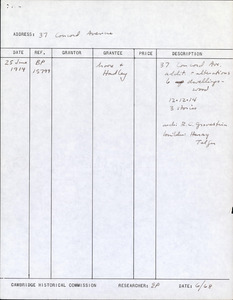 ADDRESS: 37 Concord Avenue
DATE REF. GRANTOR GRANTEE PRICE DESCRIPTION
25 June BP Moore + 37 Concord Ave.
1914 15799 Hadley addit. + alterations
to dwelling-
wood
12-12-14
3 stories
builder: Henry
CAMBRIDGE HISTORICAL COMMISSION RESEARCHER: EP DATE: 6/68